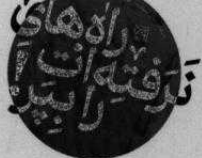 راه‌های
نَرَفتِه‌ات
را بِپَر